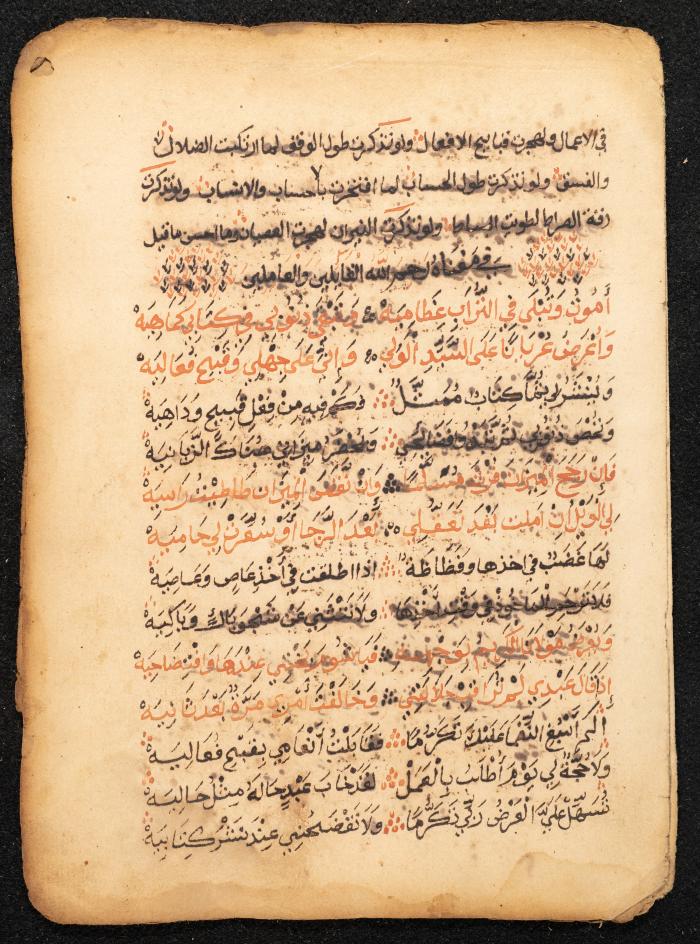 في الاعمال ولهجرت قبايح الافعال ولو تذكرت طول الوقف لما ارتكبت الضلال
والفسق ولو تذكرت طول الحساب لما افتخرت بأحساب والانساب ولو تذكرت
رقة الصراط لطويت البساط ولو تذكرت النيران لهجرت العصيان وما احسن ما قيل
في معناه رحم الله القايلين والعاملين
أموت وتبلى في التراب عظاميه وتبقى ذنوبي في كتابي كماهيه
وأعرض عريانا على السيد الولي وإني على جهلي وقبح فعاليه
وينشر لي ثم كتاب ممثل وكم فيه من فعل قبيح وداهيه
وتحصى ذنوبي وفضائحي ويحضر ميزاني هناك الزبانيه
فإن رجح الميزان فزت مسلما وإن نقص الميزان طاطيت راسيه
لي الويل ان املت لقد تعقلي بعد الرجا أو سعرت لي حاميه
لها غضب في اخذها وفظاظة اذا اطلعت في أخذ عاص وعاصيه
فلا ترحم الماخوذ في وقت اخذها ولا تنثني عن شجو باك وباكيه
عندها وافتضاحيه
إذ قال عبدي لم تراقب جلالتي وخالفت أمري مرة بعد ثانيه
ألم أسبغ النعما عليك تكرما فقابلت أنعامي بقبح فعاليه
ولا حجة لي يوم أطلب بالعمل لقد خاب عبد حاله مثل حاليه
تسهل علي العرض ربي تكرما ولا تفضحني عند نشر كتابيه